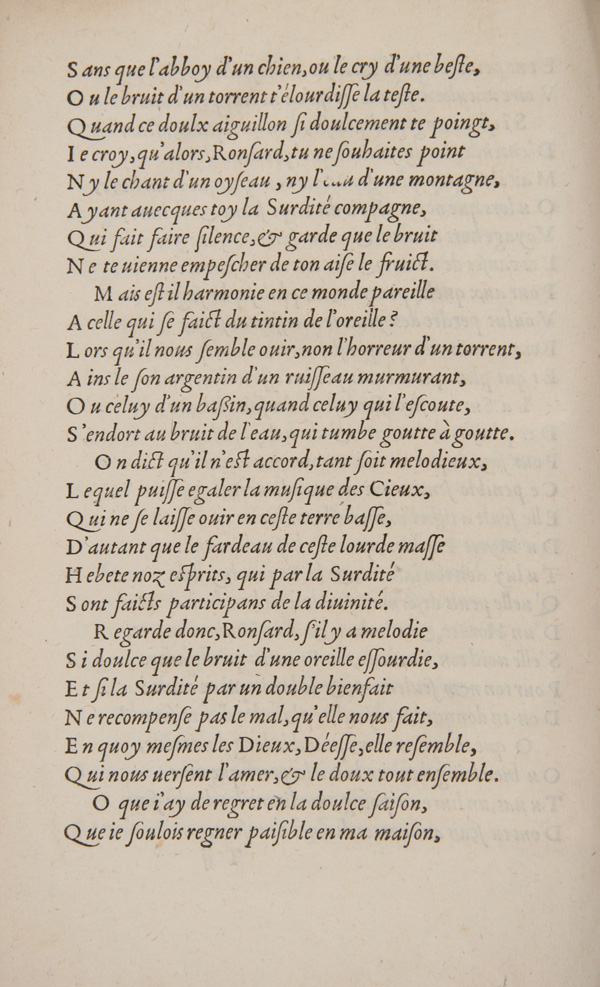 Sans que l'abboy d'un chien, ou le cry d'une beſte,
Ou le bruit d'un torrent t'élourdiſſe la teſte.
Quand ce doulx aiguillon ſi doulcement te poingt,
Ie croy, qu'alors, Ronſard, tu ne ſouhaites point
Ny le chant d'un oyſeau, ny l'eau d'une montagne,
Ayant auecques toy la Surdité compagne,
Qui fait faire ſilence, & garde que le bruit
Ne te uienne empeſcher de ton aiſe le fruict.
Mais eſt il harmonie en ce monde pareille
A celle qui ſe faict du tintin de l'oreille?
Lors qu'il nous ſemble ouir, non l'horreur d'un torrent,
Ains le ſon argentin d'un ruiſſeau murmurant,
Ou celuy d'un baßin, quand celuy qui l'eſcoute,
S'endort au bruit de l'eau, qui tumbe goutte à goutte.
On dict qu'il n'eſt accord, tant ſoit melodieux,
Lequel puiſſe egaler la muſique des Cieux,
Qui ne ſe laiſſe ouir en ceſte terre baſſe,
D'autant que le fardeau de ceſte lourde maſſe
Hebete noz eſprits, qui par la Surdité
Sont faicts participans de la diuinité.
Regarde donc, Ronſard, s'il y a melodie
Si doulce que le bruit d'une oreille eſſourdie,
Et ſi la Surdité par un double bienfait
Ne recompenſe pas le mal, qu'elle nous fait,
En quoy meſmes les Dieux, Déeſſe, elle reſemble,
Qui nous uerſent l'amer, & le doux tout enſemble.
O que i'ay de regret en la doulce ſaiſon,
Que ie ſoulois regner paiſible en ma maiſon,